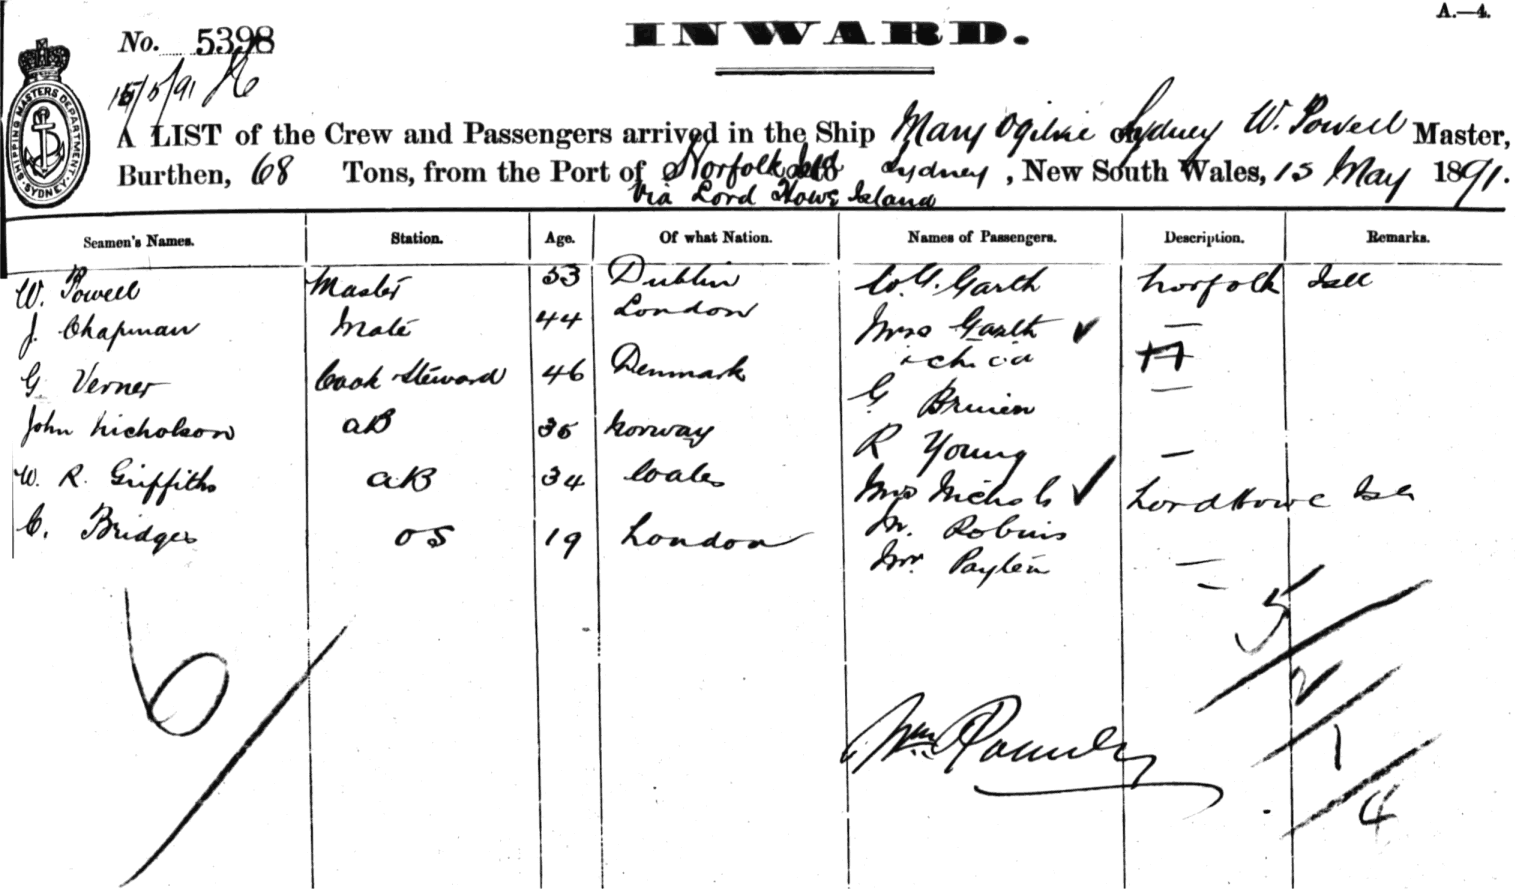 A.—4.
INWARD.
No. 5398
15/5/91
SHIPPING MASTERS DEPARTMENT. SYDNEY.
A LIST of the Crew and Passengers arrived in the Ship Mary Ogilvie of Sydney W. Powell Master,
Burthen, 68 Tons, from the Port of Norfolk Isld to Sydney, New South Wales, 15 May 1891.
Via Lord Howe Island
Seamen's Names. Station. Age. Of what Nation. Names of Passengers. Description. Remarks.
W. Powell Master 53 Dublin W. G. Garth Norfolk Isld
J. Chapman Mate 44 London Mrs Garth —
1 child
G Verner Cook Steward 46 Denmark G —
John Nicholson AB 35 Norway R Young —
W. R. Griffiths AB 34 Wales Mrs Nichols Lord Howe Isld
C. Bridges OS 19 London Mr. Robins —
Mr. Payten —
6
5
2
1
4
Wm